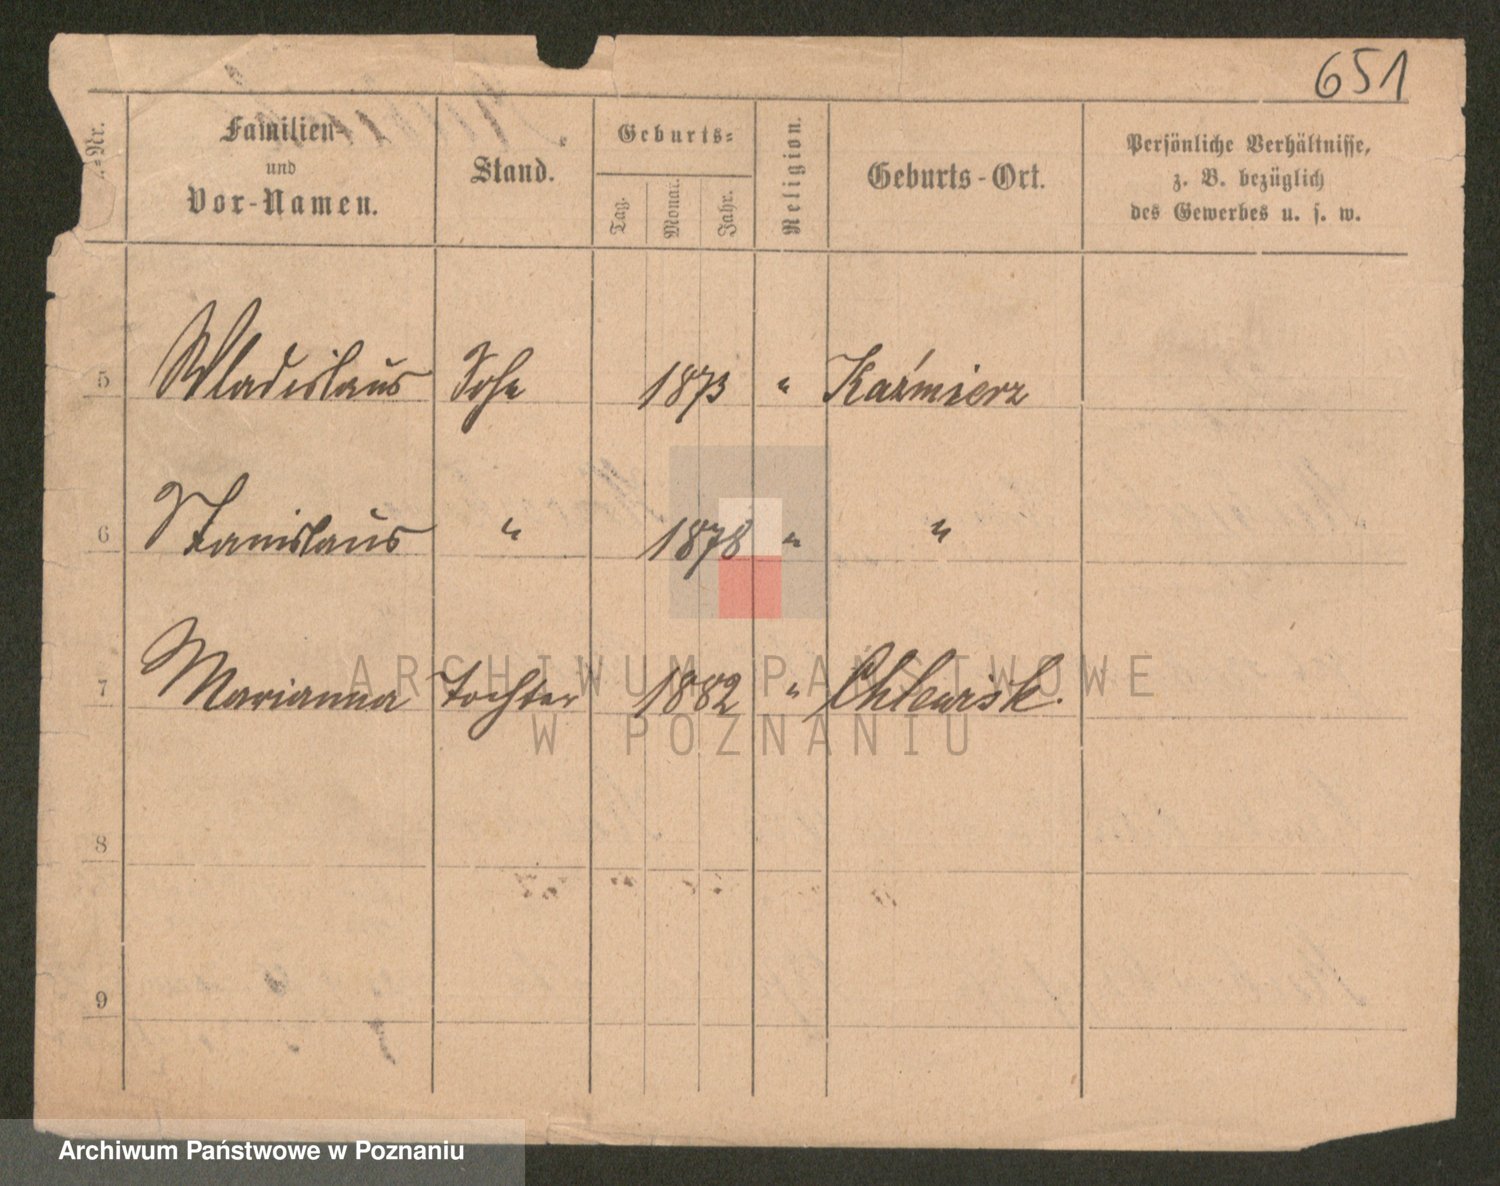 651
=Nr.
Familien-
und
Vor-Namen.
Stand.
Geburts=
Tag.
Monat.
Jahr.
Religion.
Geburts-Ort.
Persönliche Verhältnisse,
z. B. bezüglich
des Gewerbes u. s. w.
5 Wladislaus Sohn 1873 " Kaźmierz
6 Stanislaus " 1878 " "
7 Marianna Tochter 1882 "
8
9
ARCHIWUM PAŃSTWOWE
W POZNANIU
Archiwum Państwowe w Poznaniu